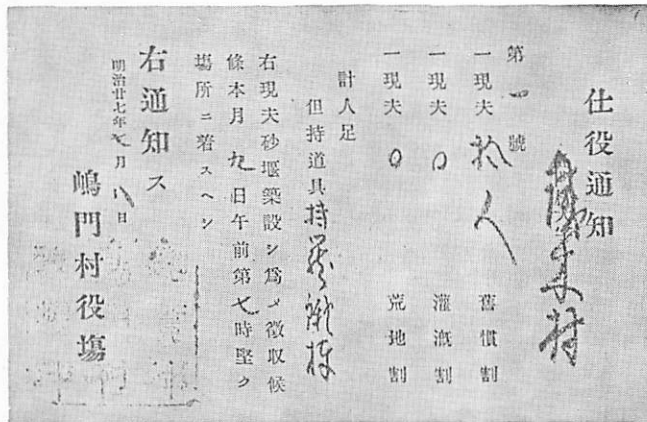 仕役通知
第一號
一現夫 拾人 舊慣割
一現夫 〇 灌漑割
一現夫 〇 荒地割
計人足
但持道具持
右現夫砂堰築設シ爲メ徴収候
條本月九日午前第七時堅ク
場所ニ着スヘシ
右通知ス
明治廿七年七月八日
嶋門村役塲